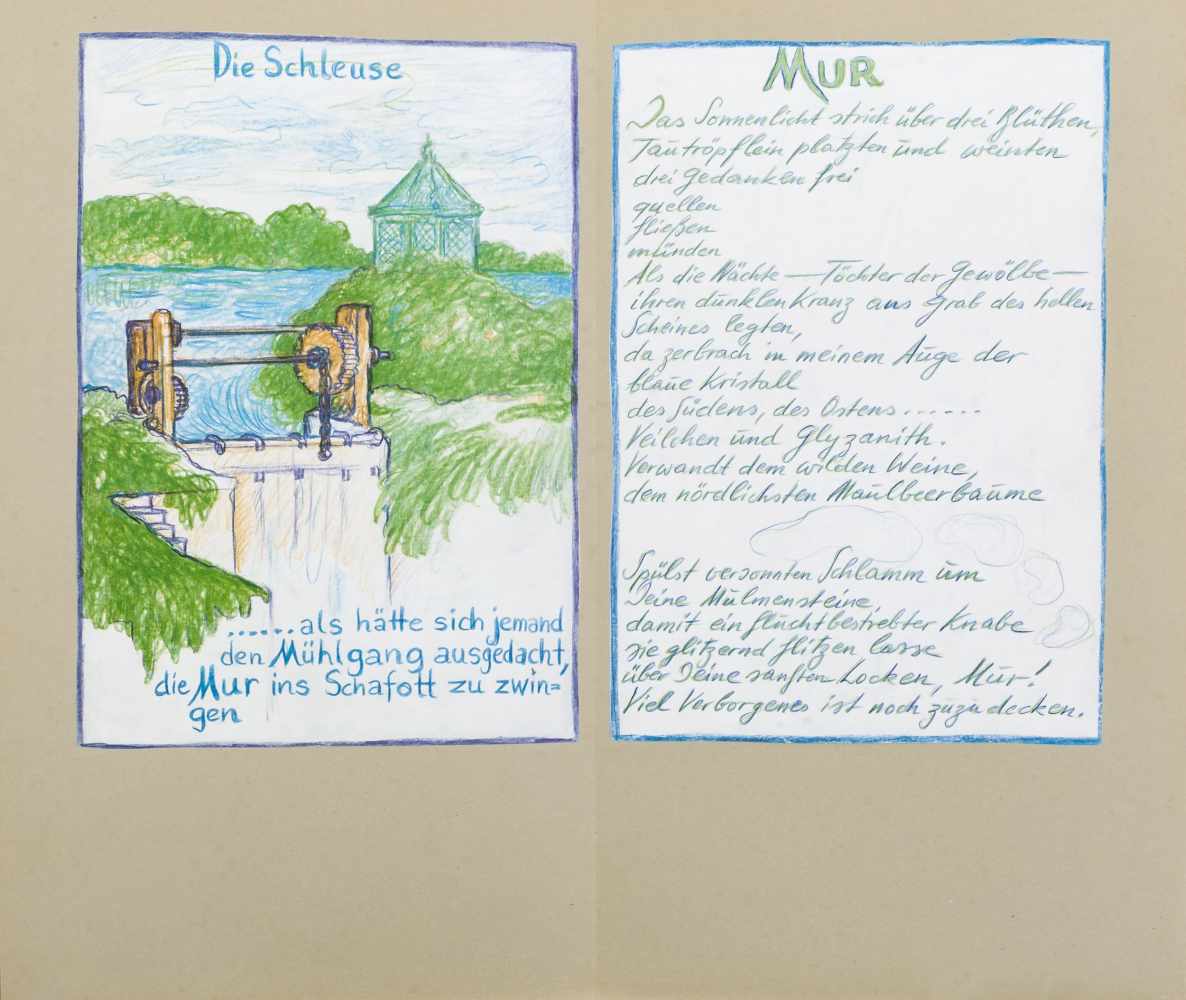 Die Schleuse
......als hätte sich jemand
den Mühlgang ausgedacht,
die Mur ins Schafott zu zwin=
gen
MUR
Das Sonnenlicht strich über drei Blüthen,
Tautröpflein platzten und weinten
drei Gedanken frei
quellen
fließen
münden
Als die Nächte — Töchter der Gewölbe —
ihren dunklen Kranz aus Grab des hellen
Scheines legten,
da zerbrach in meinem Auge der
blaue Kristall
des Südens, des Ostens......
Veilchen und Glyzanith.
Verwandt dem wilden Weine,
dem nördlichsten Maulbeerbaume
Spülst versonnten Schlamm um
Deine Mulmensteine,
damit ein fluchtbestrebter Knabe
sie glitzernd flitzen lasse
über Deine sanften Locken, Mur!
Viel Verborgenes ist noch zuzudecken.